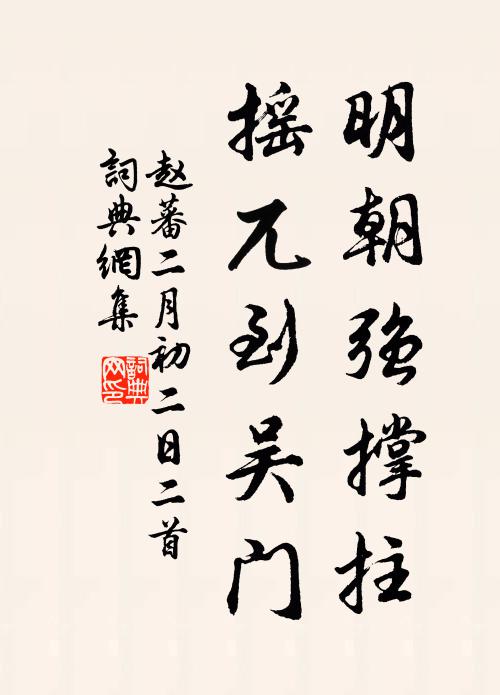 明朝强撑拄
摇兀到吴门
赵蕃二月初二日二首
詞典網集
詞典網印